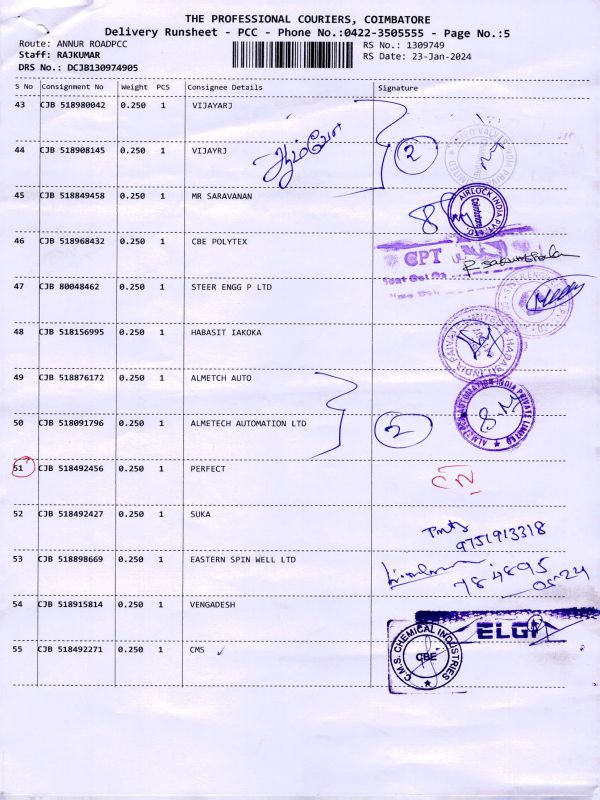 THE PROFESSIONAL COURIERS, COIMBATORE
Delivery Runsheet - PCC - Phone No.:0422-3505555 - Page No.:5
Route: ANNUR ROADPCC RS No.: 1309749
Staff: RAJKUMAR RS Date: 23-Jan-2024
DRS No.: DCJB130974905
S No Consignment No Weight PCS Consignee Details Signature
43 CJB 518980042 0.250 1 VIJAYARJ
44 CJB 518908145 0.250 1 VIJAYRJ 2
45 CJB 518849458 0.250 1 MR SARAVANAN AIRLOCK INDIA PVT. LTD. Coimbatore
46 CJB 518968432 0.250 1 CBE POLYTEX GPT
47 CJB 80048462 0.250 1 STEER ENGG P LTD
48 CJB 518156995 0.250 1 HABASIT IAKOKA
49 CJB 518876172 0.250 1 ALMETCH AUTO
50 CJB 518091796 0.250 1 ALMETECH AUTOMATION LTD 2
51 CJB 518492456 0.250 1 PERFECT
52 CJB 518492427 0.250 1 SUKA
9751913318
53 CJB 518898669 0.250 1 EASTERN SPIN WELL LTD
784895
0524
54 CJB 518915814 0.250 1 VENGADESH
ELGI
55 CJB 518492271 0.250 1 CMS C.M.S. CHEMICAL INDUSTRIES CBE